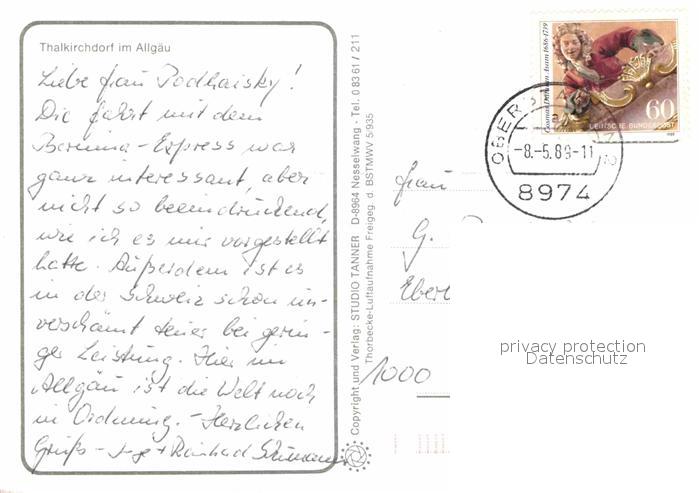 Thalkirchdorf im Allgäu
Liebe Frau Podhaisky!
Die Fahrt mit dem
Bernina-Express war
ganz interessant, aber
nicht so beeindruckend,
wie ich es mir vorgestellt
hatte. Außerdem ist es
in der Schweiz schon un-
verschämt teuer bei gerin-
ger Leistung. Hier im
Allgäu ist die Welt noch
in Ordnung. - Herzlichen
Gruß - + Reinhard
Copyright und Verlag: STUDIO TANNER D-8964 Nesselwang - Tel. 0 83 61 / 211
Thorbecke-Luftaufnahme Freigeg. d. BSTMWV 5/935
Cosmas Damian Asam 1686-1739
60
DEUTSCHE BUNDESPOST
-8.-5.89-11
8974
Frau
G.
Eber
1000
privacy protection
Datenschutz